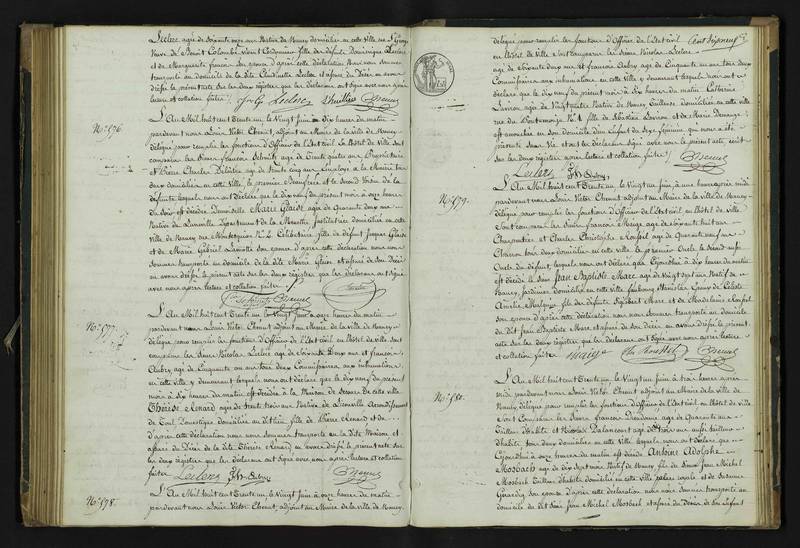 Leclerc agée de Soixante
Veuve de Benoit Colombé vivant Cordonnier fille des défunts Dominique Leclerc
et de Marguerite françois Son épouse d'après cette déclaration Nous nous sommes
transporté au domicile de la dite Claudinette Leclerc et assuré du décès en avons
dréssé le présent acte Sur les deux registres que les déclarans ont signé avec nous après
lecture et collation faite
Leclerc
N.° 576.
L'An Mil huit cent Trente un, le Vingt Juin à dix heures du matin
pardevant nous Louis Victor Chenut, adjoint au Maire de la ville de Nancy
délégué pour remplir les fonctions d'Officier de l'Etat civil En l'hôtel de Ville sont
comparus les Sieurs françois Delruite agé de Trente quatre ans Propriétaire
et Pierre Charles Delattre agé de trente cinq ans, employé à la Mairie tous
deux domiciliés en cette Ville, le premier Beaufrère et le Second Voisin de la
défunte lesquels nous ont déclaré que le dix neuf du présent mois à onze heures
du Soir est décédée Demoiselle Marie Glaise agée de Quarante deux ans
Native de Luneville Département de la Meurthe Institutrice domiciliée en cette
ville de Nancy rue Montesquieu N.° 2. Célibataire fille de défunt Jacques Glaise
et de Marie Gabriel Lariotte son épouse d'après cette déclaration nous nous
sommes transporté au domicile de la dite Marie Glaise et assuré de son Décès
en avons dréssé le présent acte sur les deux registres que les déclarans ont Signé
avec nous après lecture et collation faite
N.° 577.
L'An Mil huit cent Trente un le Vingt Juin à onze heures du matin
pardevant nous Louis Victor Chenut, adjoint au Maire de la ville de Nancy
délégué pour remplir les fonctions d'Officier de l'Etat civil en l'hôtel de ville sont
comparus les Sieurs Nicolas Leclerc agé de Soixante Deux ans et françois
Aubry agé de Cinquante un ans tous deux Commissionnaires aux inhumations
en cette ville y demeurant lesquels nous ont déclaré que le dix neuf du présent
mois à dix heures du matin est décédée à la Maison de Secours de cette ville
Thérèse Renard agée de trente trois ans Native de Lironville Arrondissement
de Toul Domestique domiciliée au dit lieu, fille de Pierre Renard et de
d'après cette déclaration nous nous sommes transporté à la dite Maison et
assuré du Décès de la dite Thérèse Renard en avons dréssé le présent acte sur
les deux registres que les déclarans ont Signé avec nous après lecture et collation
faites Leclerc Aubry Chenut
N.° 578.
L'An Mil huit cent Trente un le Vingt Juin à onze heures du matin
pardevant nous Louis Victor Chenut, adjoint au Maire de la ville de Nancy,
délégué pour remplir les fonctions d'Officier de l'Etat civil
en l'hôtel de Ville sont comparus les Sieurs Nicolas Leclerc
agé de Soixante deux ans et françois Aubry agé de Cinquante un ans tous deux
Commissionnaires aux inhumations en cette ville y demeurant lesquels nous ont
déclaré que le dix neuf du présent mois à dix heures du matin Catherine
agée de Vingt quatre ans Native de Nancy Tailleuse domiciliée en cette ville
rue de N.° 1 fille de Sébastien et de Marie Demange
est accouchée en son domicile d'un Enfant du Sexe féminin qui nous a été
présenté Sans Vie et ont les déclarans Signé avec nous le présent acte, écrit
sur les deux registres après lecture et collation faites Chenut
Leclerc Aubry
N.° 579.
L'An Mil huit cent Trente un, le Vingt un Juin à une heure après midi
pardevant nous Louis Victor Chenut adjoint au Maire de la ville de Nancy
délégué pour remplir les fonctions d'Officier de l'Etat civil en l'hôtel de Ville
sont comparus les Sieurs françois Mauge agé de Soixante huit ans
Charpentier et Charles Christophe Roussel agé de Quarante neuf ans
Charron tous deux domiciliés en cette ville le premier Oncle le Second aussi
Oncle du défunt, lesquels nous ont déclaré que Cejourd'hui à dix heures du matin
est décédé le Sieur Jean Baptiste Marc agé de Vingt sept ans Natif de
Nancy, Jardinier domicilié en cette ville faubourg Stanislas Epoux de Céleste
Amélie fils des défunts Sigisbert Marc et de Magdelaine Roussel
son épouse d'après cette déclaration nous nous sommes transporté au domicile
du dit Jean Baptiste Marc et assuré de son Décès en avons dréssé le présent
acte sur les deux registres que les déclarans ont Signé avec nous après lecture
et collation faites Mauge Ch. Roussel Chenut
N.° 580.
L'An Mil huit cent Trente un, le Vingt un Juin à trois heures après
midi pardevant nous Louis Victor Chenut adjoint au Maire de la ville de
Nancy, délégué pour remplir les fonctions d'Officier de l'Etat civil en l'hôtel de Ville
sont Comparus les Sieurs françois Dieudonné agé de Quarante ans
Tailleur d'habits et Nicolas Balancourt agé de trois ans aussi Tailleur
d'habits, tous deux domiciliés en cette ville lesquels nous ont déclaré que
Cejourd'hui à onze heures du matin est décédé Antoine Adolphe
Mosbach agé de dix sept mois Natif de Nancy, fils du Sieur Jean Michel
Mosbach Tailleur d'habits domicilié en cette ville place royale et de Suzanne
Girardez Son épouse d'après cette déclaration nous nous sommes transporté au
domicile du dit Sieur Jean Michel Mosbach et assuré du Décès de son Enfant